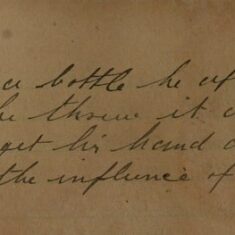 a bottle he of
he threw it a
get his hand a
the influence of